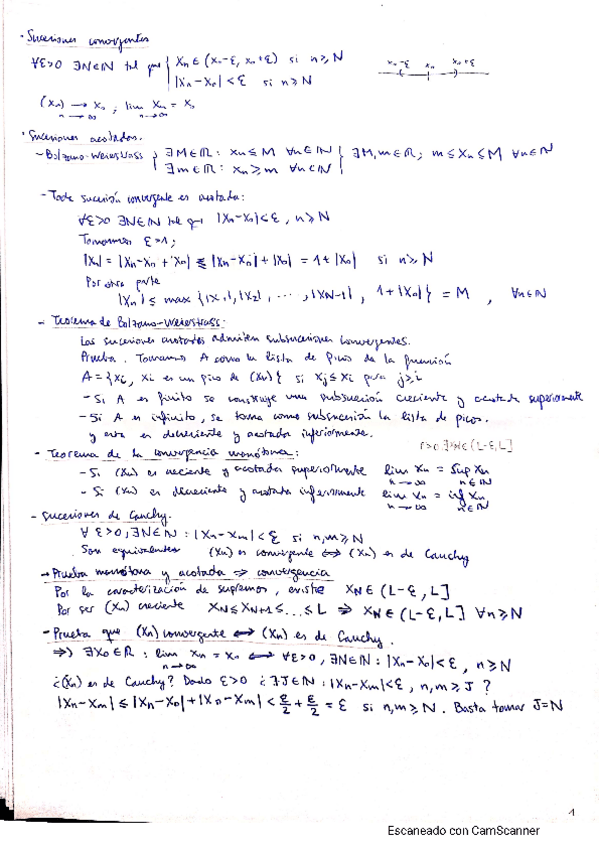 · Sucesiones convergentes
∀ε>0 ∃N∈ℕ tal que { Xn ∈ (x₀-ε, x₀+ε) si n≥N
|Xn-X₀|<ε si n≥N
x₀-ε x₀ x₀+ε
(Xn) → X₀ ; lim Xn = X₀
n→∞ n→∞
· Sucesiones acotadas.
- Bolzano-Weierstrass } ∃M∈ℝ: Xn ≤ M ∀n∈ℕ } ∃M,m∈ℝ; m≤Xn≤M ∀n∈ℕ
∃m∈ℝ: Xn ≥ m ∀n∈ℕ
- Toda sucesión convergente es acotada:
∀ε>0 ∃N∈ℕ tal que |Xn-X₀|<ε, n≥N
Tomamos ε=1;
|Xn| = |Xn-X₀+X₀| ≤ |Xn-X₀|+|X₀| = 1+|X₀| si n≥N
Por otra parte
|Xn| ≤ max {|X₁|,|X₂|, ..., |XN-1|, 1+|X₀|} = M, ∀n∈ℕ
- Teorema de Bolzano-Weierstrass:
Las sucesiones acotadas admiten subsucesiones convergentes.
Prueba. Tomamos A como la lista de picos de la función
A = {Xi, Xi es un pico de (Xn)} si Xj ≤ Xi para j≥i
- Si A es finito se construye una subsucesión creciente y acotada superiormente
- Si A es infinito, se toma como subsucesión la lista de picos.
y esta es decreciente y acotada inferiormente.
- Teorema de la convergencia monótona: ∃ ∈ (L-ε, L]
- Si (Xn) es creciente y acotada superiormente lim Xn = sup Xn
n→∞ n∈ℕ
- Si (Xn) es decreciente y acotada inferiormente lim Xn = inf Xn
n→∞ n∈ℕ
- Sucesiones de Cauchy.
∀ε>0, ∃N∈ℕ: |Xn-Xm|<ε si n,m≥N
Son equivalentes (Xn) es convergente ⟺ (Xn) es de Cauchy
→ Prueba monótona y acotada ⇒ convergencia
Por la caracterización de supremos, existe XN ∈ (L-ε, L]
Por ser (Xn) creciente XN ≤ XN+1 ≤ ... ≤ L ⇒ Xn ∈ (L-ε, L] ∀n≥N
- Prueba que (Xn) convergente ⟺ (Xn) es de Cauchy.
⇒) ∃X₀∈ℝ: lim Xn = X₀ ⟺ ∀ε>0, ∃N∈ℕ: |Xn-X₀|<ε, n≥N
n→∞
¿(Xn) es de Cauchy? Dado ε>0 ¿∃J∈ℕ: |Xn-Xm|<ε, n,m≥J?
|Xn-Xm| ≤ |Xn-X₀|+|X₀-Xm| < ε/2 + ε/2 = ε si n,m≥N. Basta tomar J=N
1
Escaneado con CamScanner